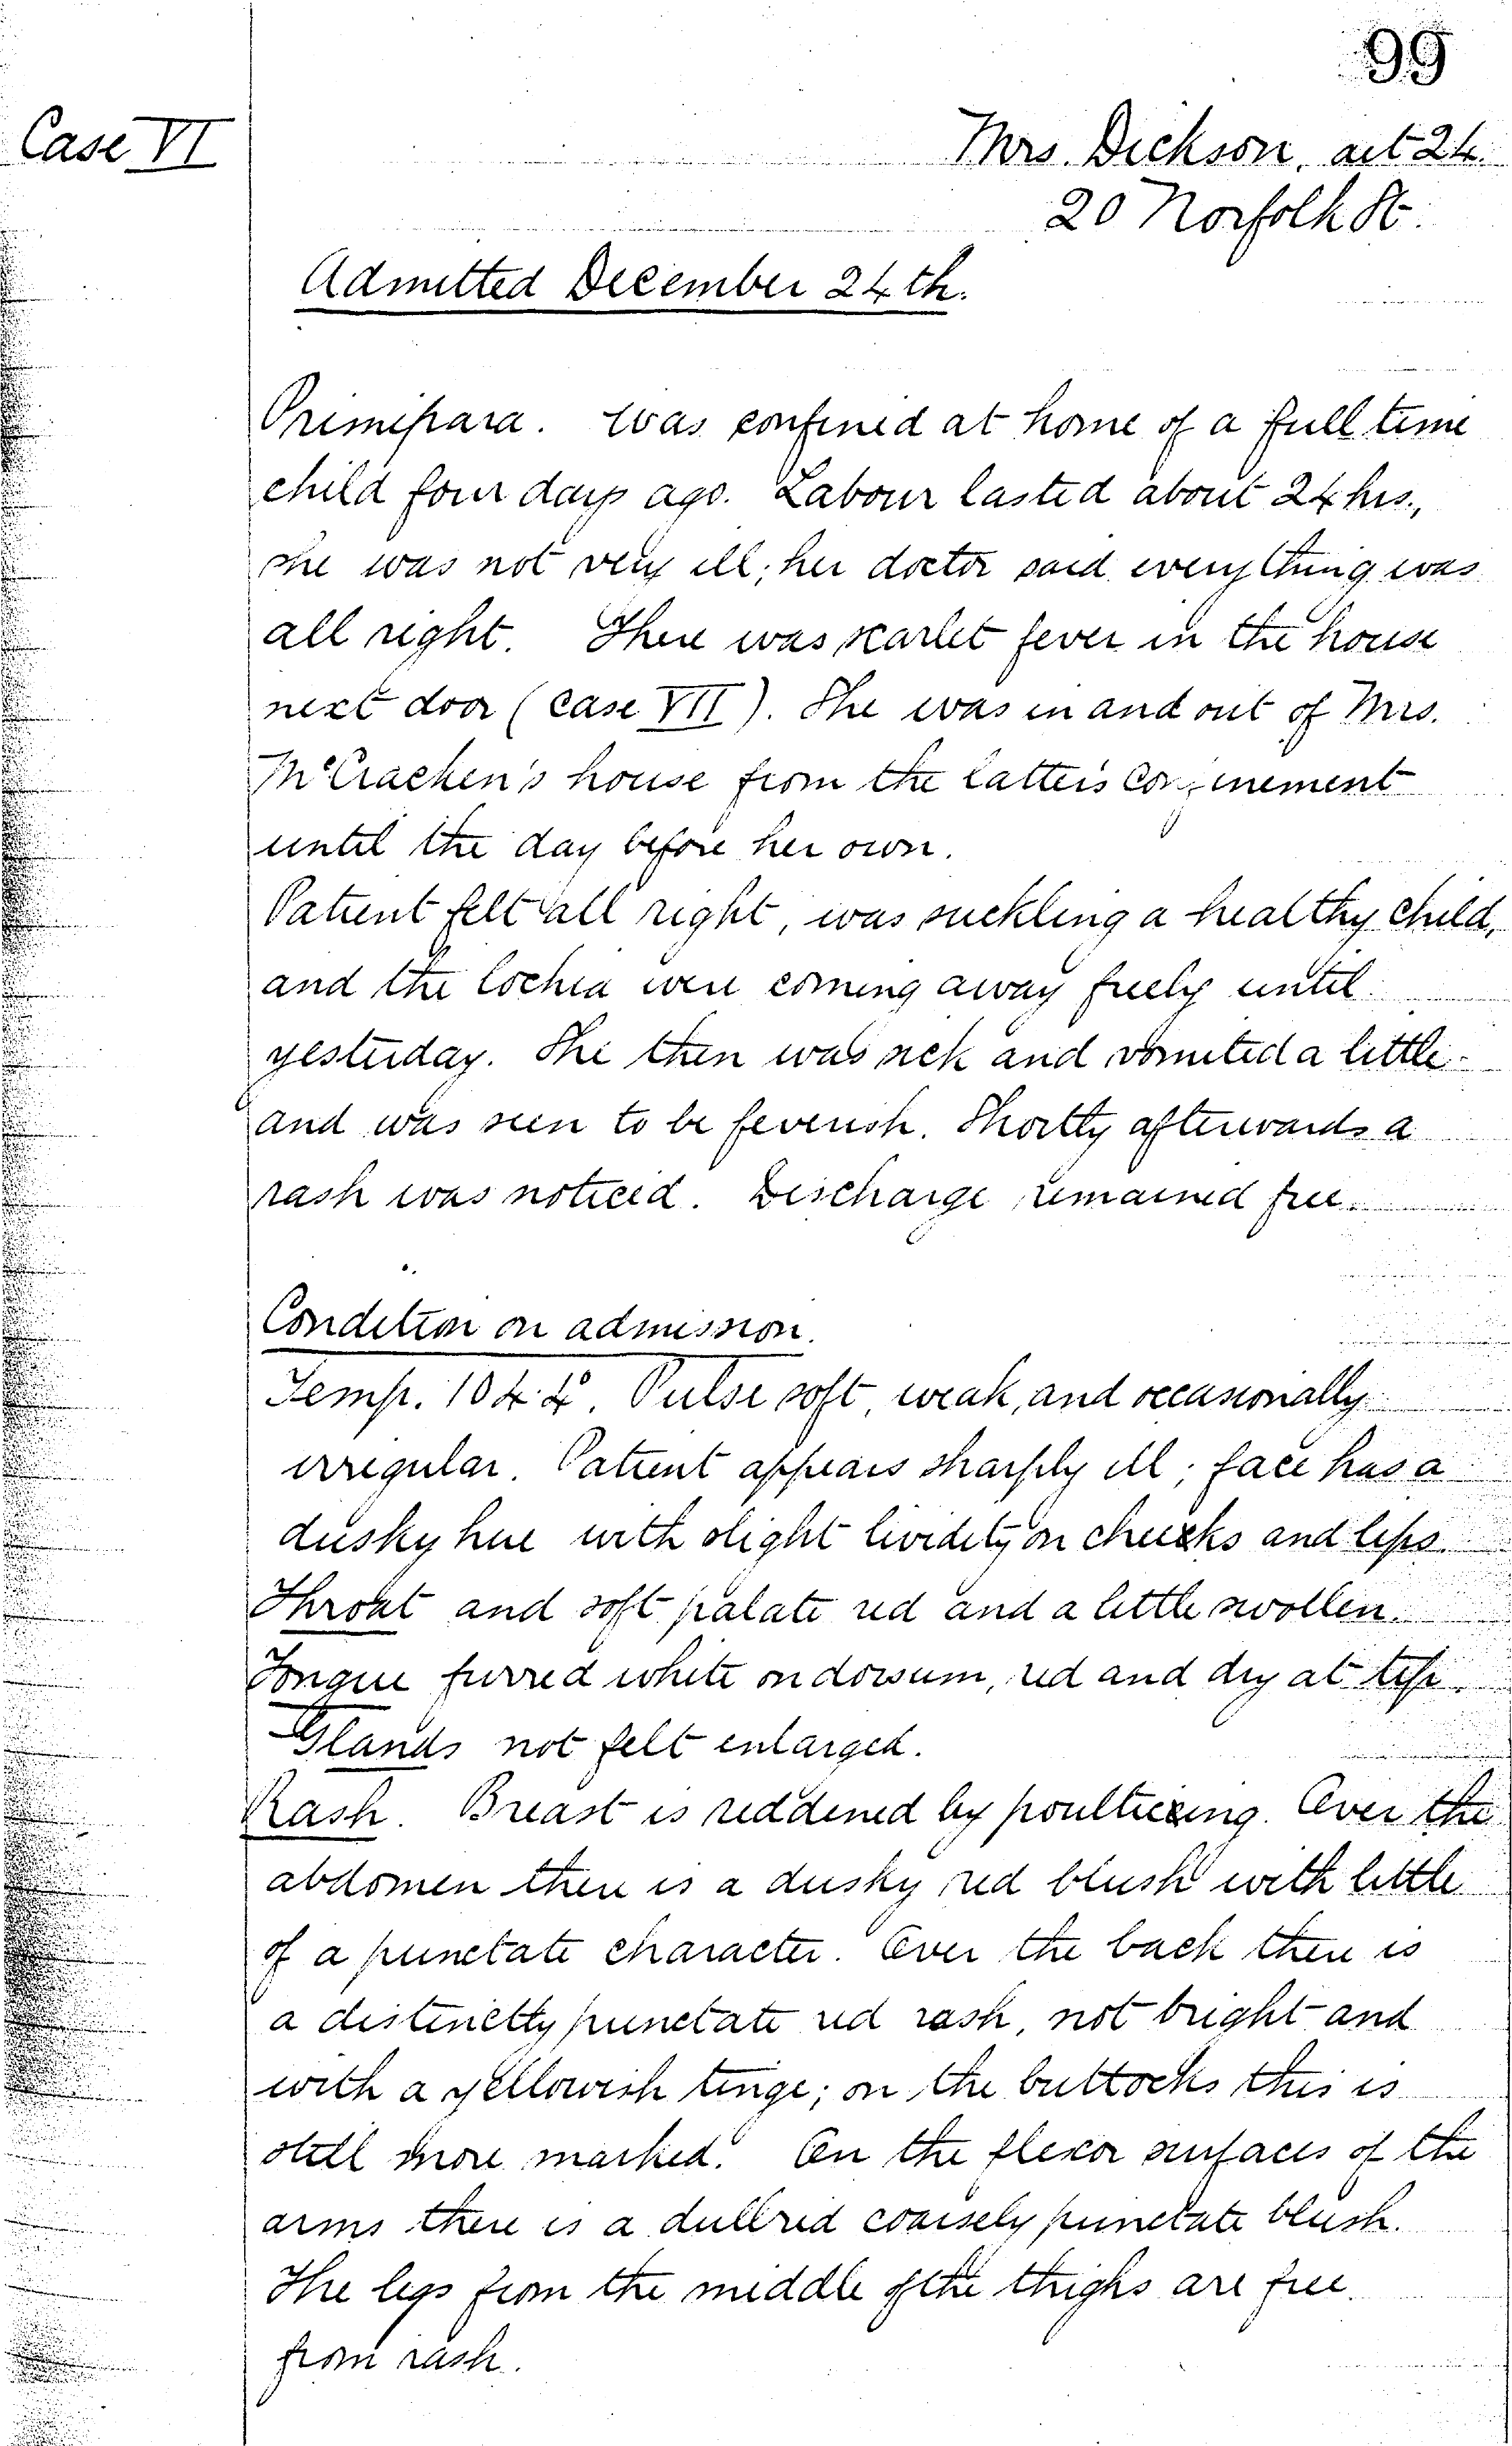 99
Case VI
Mrs. Dickson, aet 24.
20 Norfolk St.
Admitted December 24th.
Primipara. Was confined at home of a full time
child four days ago. Labour lasted about 24 hrs.,
she was not very ill; her doctor said everything was
all right. There was scarlet fever in the house
next door (case VII). She was in and out of Mrs.
McCracken's house from the latter's confinement
until the day before her own.
Patient felt all right, was suckling a healthy child,
and the lochia were coming away freely until
yesterday. She then was sick and vomited a little
and was seen to be feverish. Shortly afterwards a
rash was noticed. Discharge remained free.
Condition on admission.
Temp. 104.4°. Pulse soft, weak, and occasionally
irregular. Patient appears sharply ill; face has a
dusky hue with slight lividity on cheeks and lips.
Throat and soft palate red and a little swollen.
Tongue furred white on dorsum, red and dry at tip.
Glands not felt enlarged.
Rash. Breast is reddened by poulticing. Over the
abdomen there is a dusky red blush with little
of a punctate character. Over the back there is
a distinctly punctate red rash, not bright and
with a yellowish tinge; on the buttocks this is
still more marked. On the flexor surfaces of the
arms there is a dull red coarsely punctate blush.
The legs from the middle of the thighs are free
from rash.